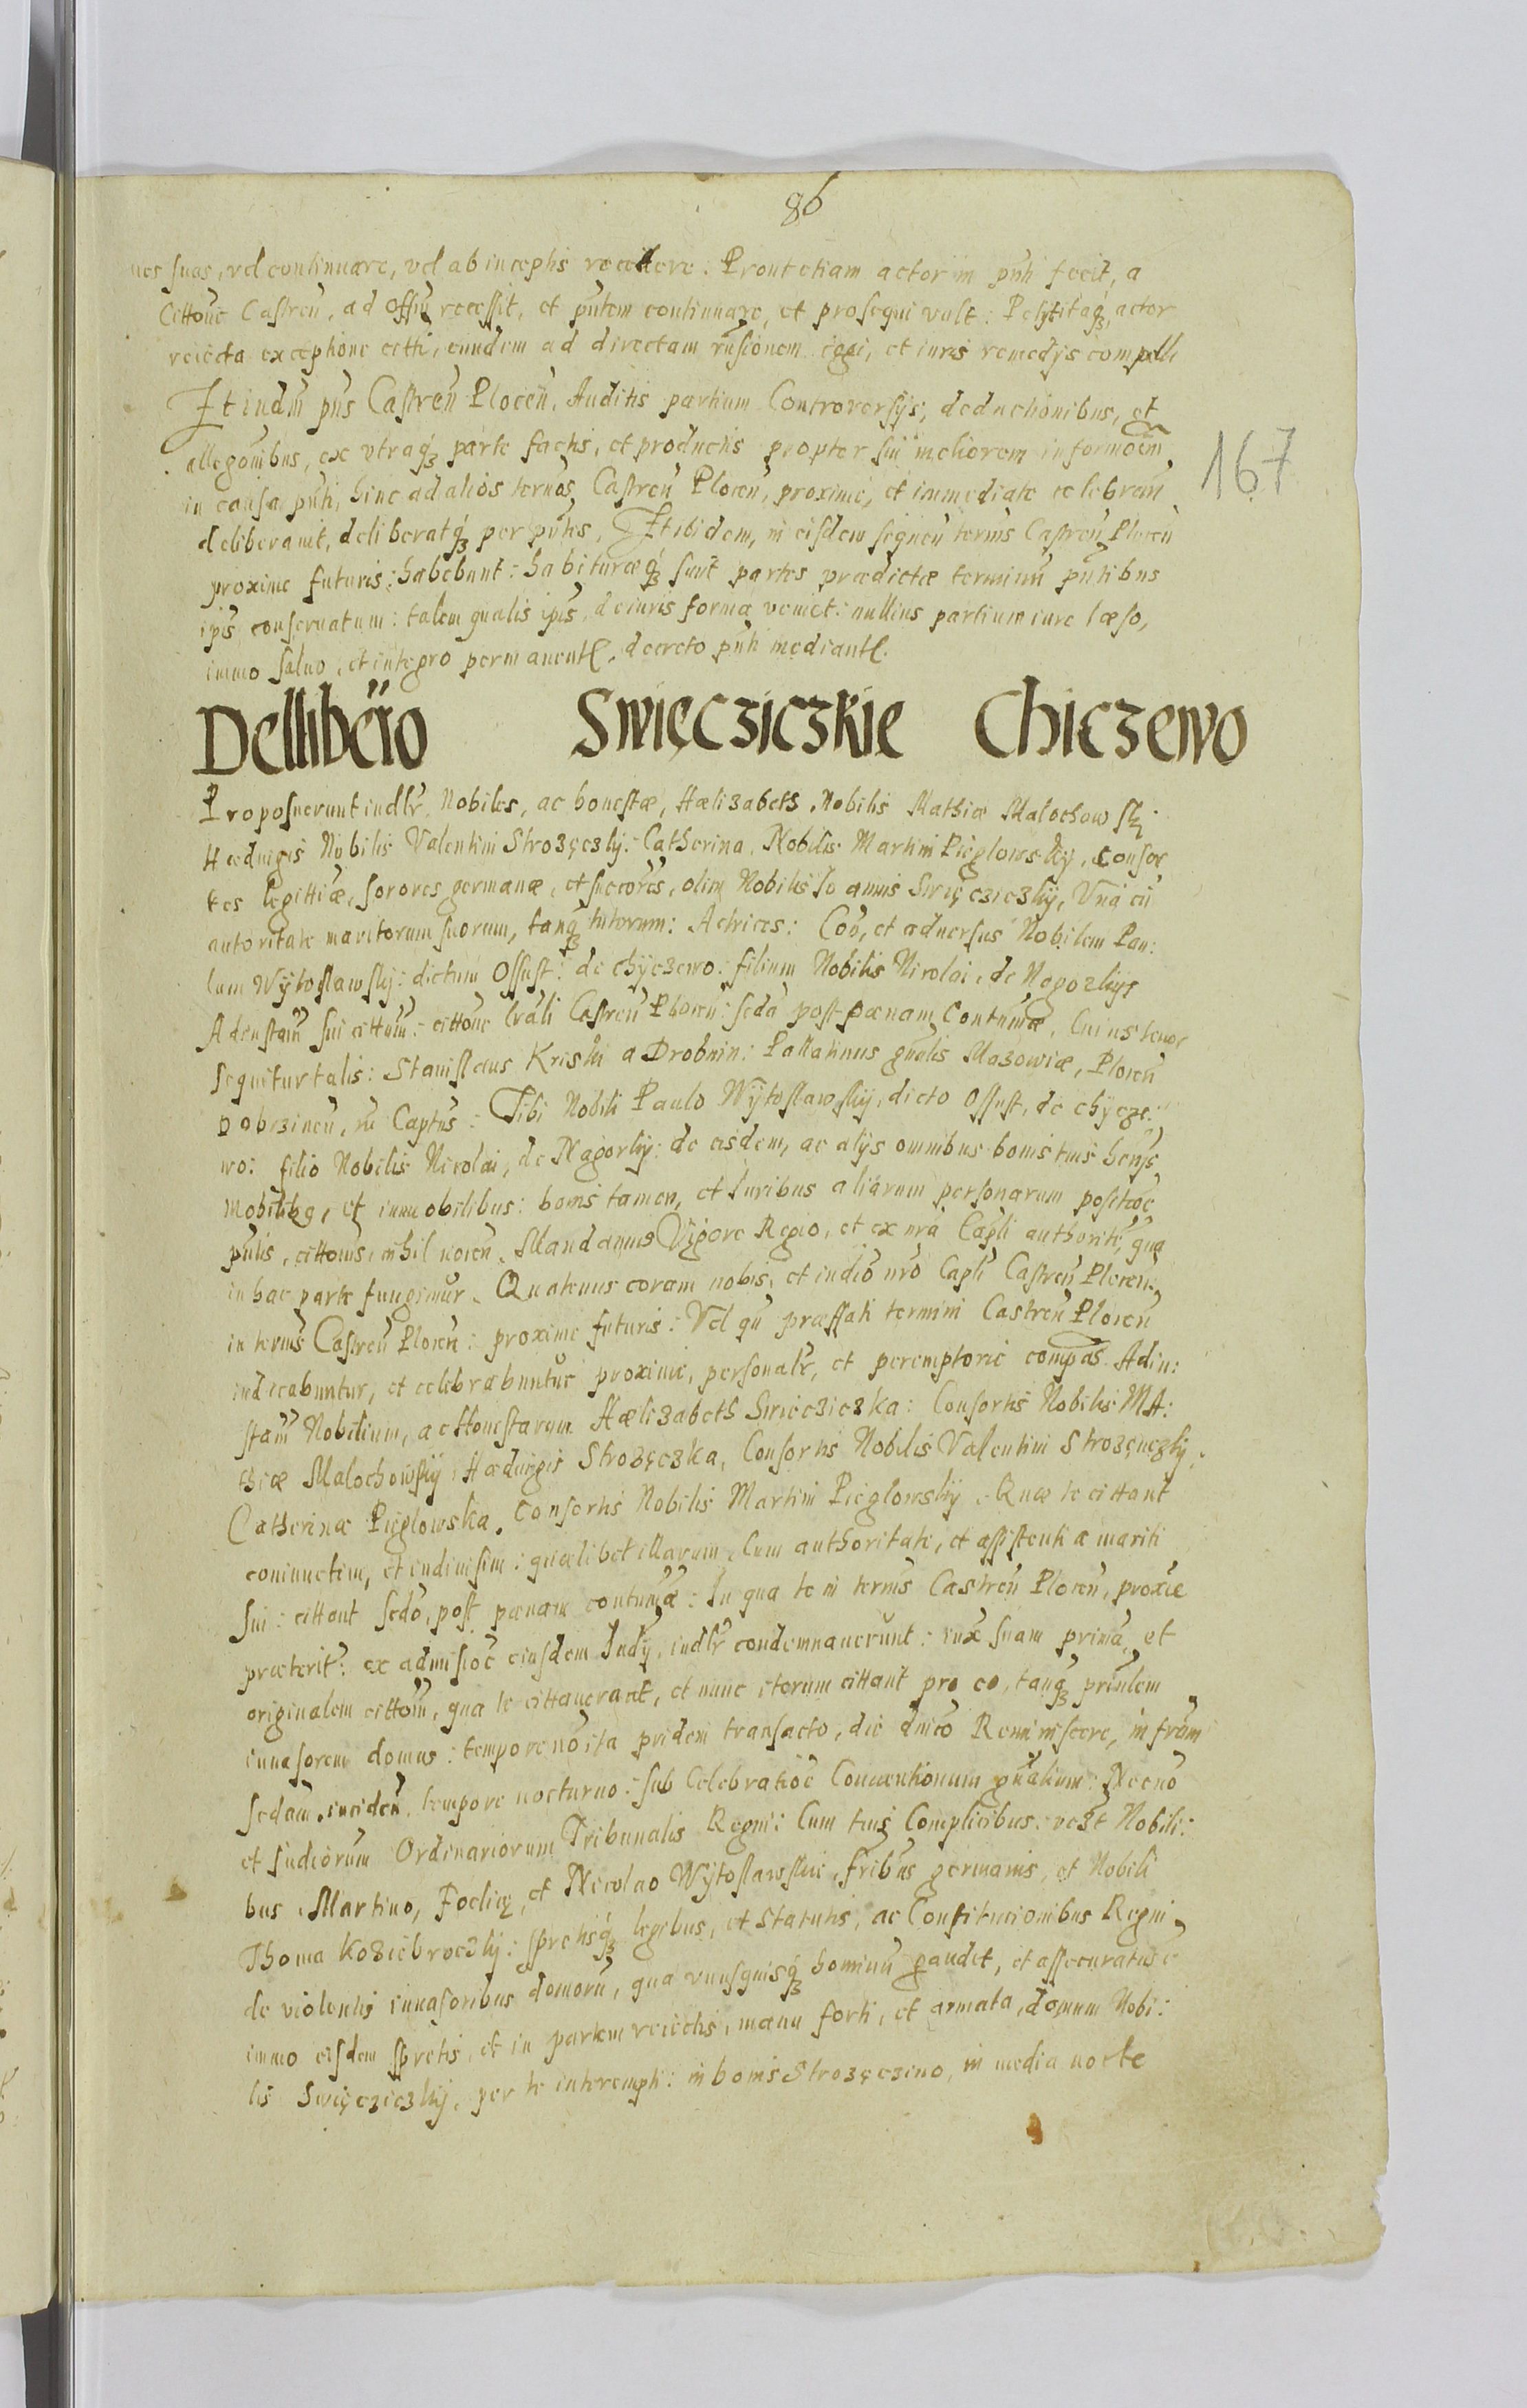 86
nes suas, vel continuare, vel ab inceptis recedere: Prout etiam actor in pn̄ti fecit, a
Cittōne Castren̄, ad Offm̄ recessit, et pn̄tem continuare, et prosequi vult: Petytitaqʒ, actor
reiecta exceptione citti, eundem ad directam rn̄sionem cogi, et iuris remedys compelli
Et iudm̄ pn̄s Castren̄ Plocen̄. Auditis partium Controversys, deductionibus, et
allegōnibus, ex vtraqʒ parte factis, et productis propter sui meliorem informōem̄
in causa pn̄ti, hinc ad alios term̄os Castren̄ Plocen̄, proxime, et immediate celebran̄
deliberauit, deliberatqʒ per pn̄tes. Et ibidem, in eisdem sequen̄ termīs Castren̄ Plocen̄
proxime futuris: habebunt: habituræqʒ sunt partes prædictæ terminū pn̄tibus
ipīs conseruatum: talem qualis ipīs, de iuris forma veniet: nullius partium iure læso,
immo saluo, et integro permanente, decreto pn̄ti mediante.
Dellibero Swięcziczkie Chiczewo
Proposuerunt iudlr̄ Nobiles, ac honestæ, Hælizabeth, Nobilis Mathiæ Malochowsky
Hæduigis Nobilis Valentini Strozęczky: Catherina, Nobilis Martini Pieglowsky, Consor
tes legittiæ, sorores germanæ, et succōres, olim Nobilis Ioannis Swięcziczky, Vna cū
autoritate maritorum suorum, tanqʒ tutorum: Actrices: Coō, et aduersus Nobilem Pau:
lum Wytoslawsky: dictum Ossust: de chyczewo: filium Nobilis Nicolai, de Nagorkys
Ad instañ sui cittum̄: cittōne lrāli Castren̄ Plocen̄: seda post pœnam Contumā. Cuius tenor
sequitur talis: Stanislaus Kriski a Drobnin: Pallatinus gn̄alis Masowiæ, Plocen̄
Dobrzinen̄, rc̄ Captūs: Tibi Nobili Paulo Wytoslawsky, dicto Ossust, de chycze:
wo: filio Nobilis Nicolai, de Nagorky: de eisdem, ac alys omnibus bonis tuis
mobilibq, et immobilibus: bonis tamen, et Iuribus aliarum personarum
pn̄tis, cittōnis, nihil nocen̄. Mandamus Vigore Regio, et ex nrā Captī authoritē, qua
in hac parte fungimur. Quatenus coram nobis, et iudiō nrō Captī Castren̄ Plocen̄
in termīs Castren̄ Plocen̄: proxime futuris: Vel qn̄ præffati termini Castren̄ Plocen̄
iudicabuntur, et celebrabuntur proxime, personalr̄, et peremptorie compās. Ad in:
stam̄ Nobilium, ac Honestarum Hælizabeth Swięcziczka: Consortis Nobilis MA:
thiæ Malochowsky, Hæduigis Strozęczka, Consortis Nobilis Valentini Strozęuczky.
Catherinæ Pieglowska, Consortis Nobilis Martini Pieglowsky. Quæ te cittant
coniunctim, et indiuisim: quælibet illarum, Cum authoritate, et assistentia mariti
sui: cittant sedō, post pœnam contumā: In qua te in termīs Castren̄ Plocen̄, proxie
præterit: ex admisiōe eiusdem Iudy, iudlr̄ condemnauerunt: iuxͣ suam primā, et
originalem cittōm̄, qua te cittauerant, et nunc iterum cittant pro eo, tanqʒ prin̄lem
inuasorem domus: tempore nō ita pridem transacto, die dnīco Reminiscere, in
inciden̄. tempore nocturno: sub Celebratiōe Conuentionum gn̄alium: Necnō
et Iudiciorum Ordinariorum Tribunalis Regni: Cum tuis Complicibus: Nobili:
bus, Martino, Foelice, et Nicolao Wytoslawskie, fribūs germanis, et Nobili
Thoma Kosiebroczky: spretisqʒ legibus, et statutis, ac Constitucionibus Regni
de violentis inuasoribus domorū, qua vnusquisqʒ hominū gaudet, et assecuratus e
immo eisdem spretis, et in partem reiectis, manu forti, et armata, domum Nobi:
lis Swięcziczky, per te interempti: in bonis Strozęczino, in media nocte
167